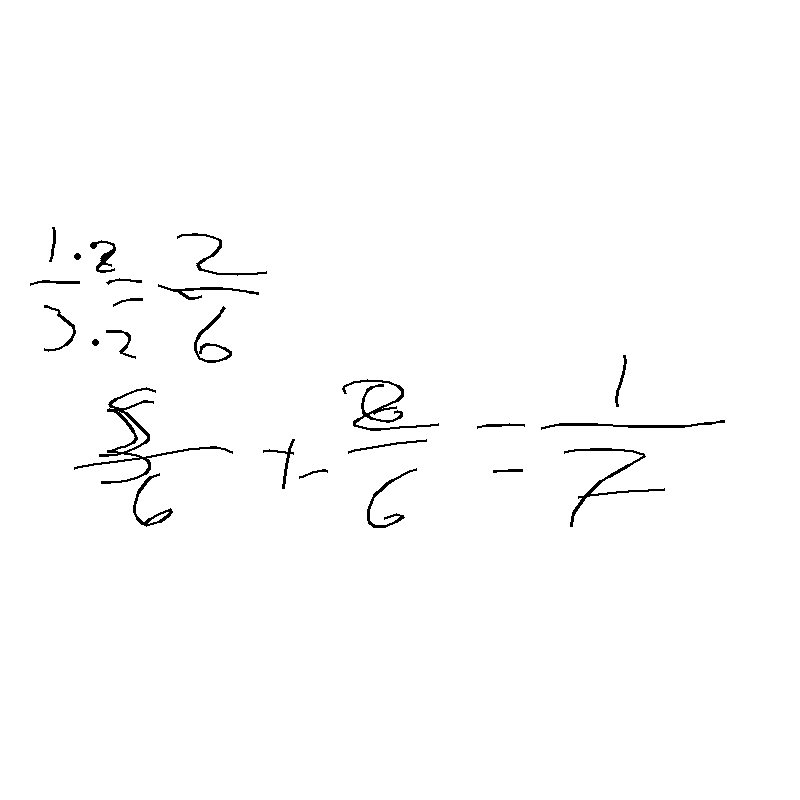 1·2/3·2 = 2/6
5/6 + 2/6 = 1/7